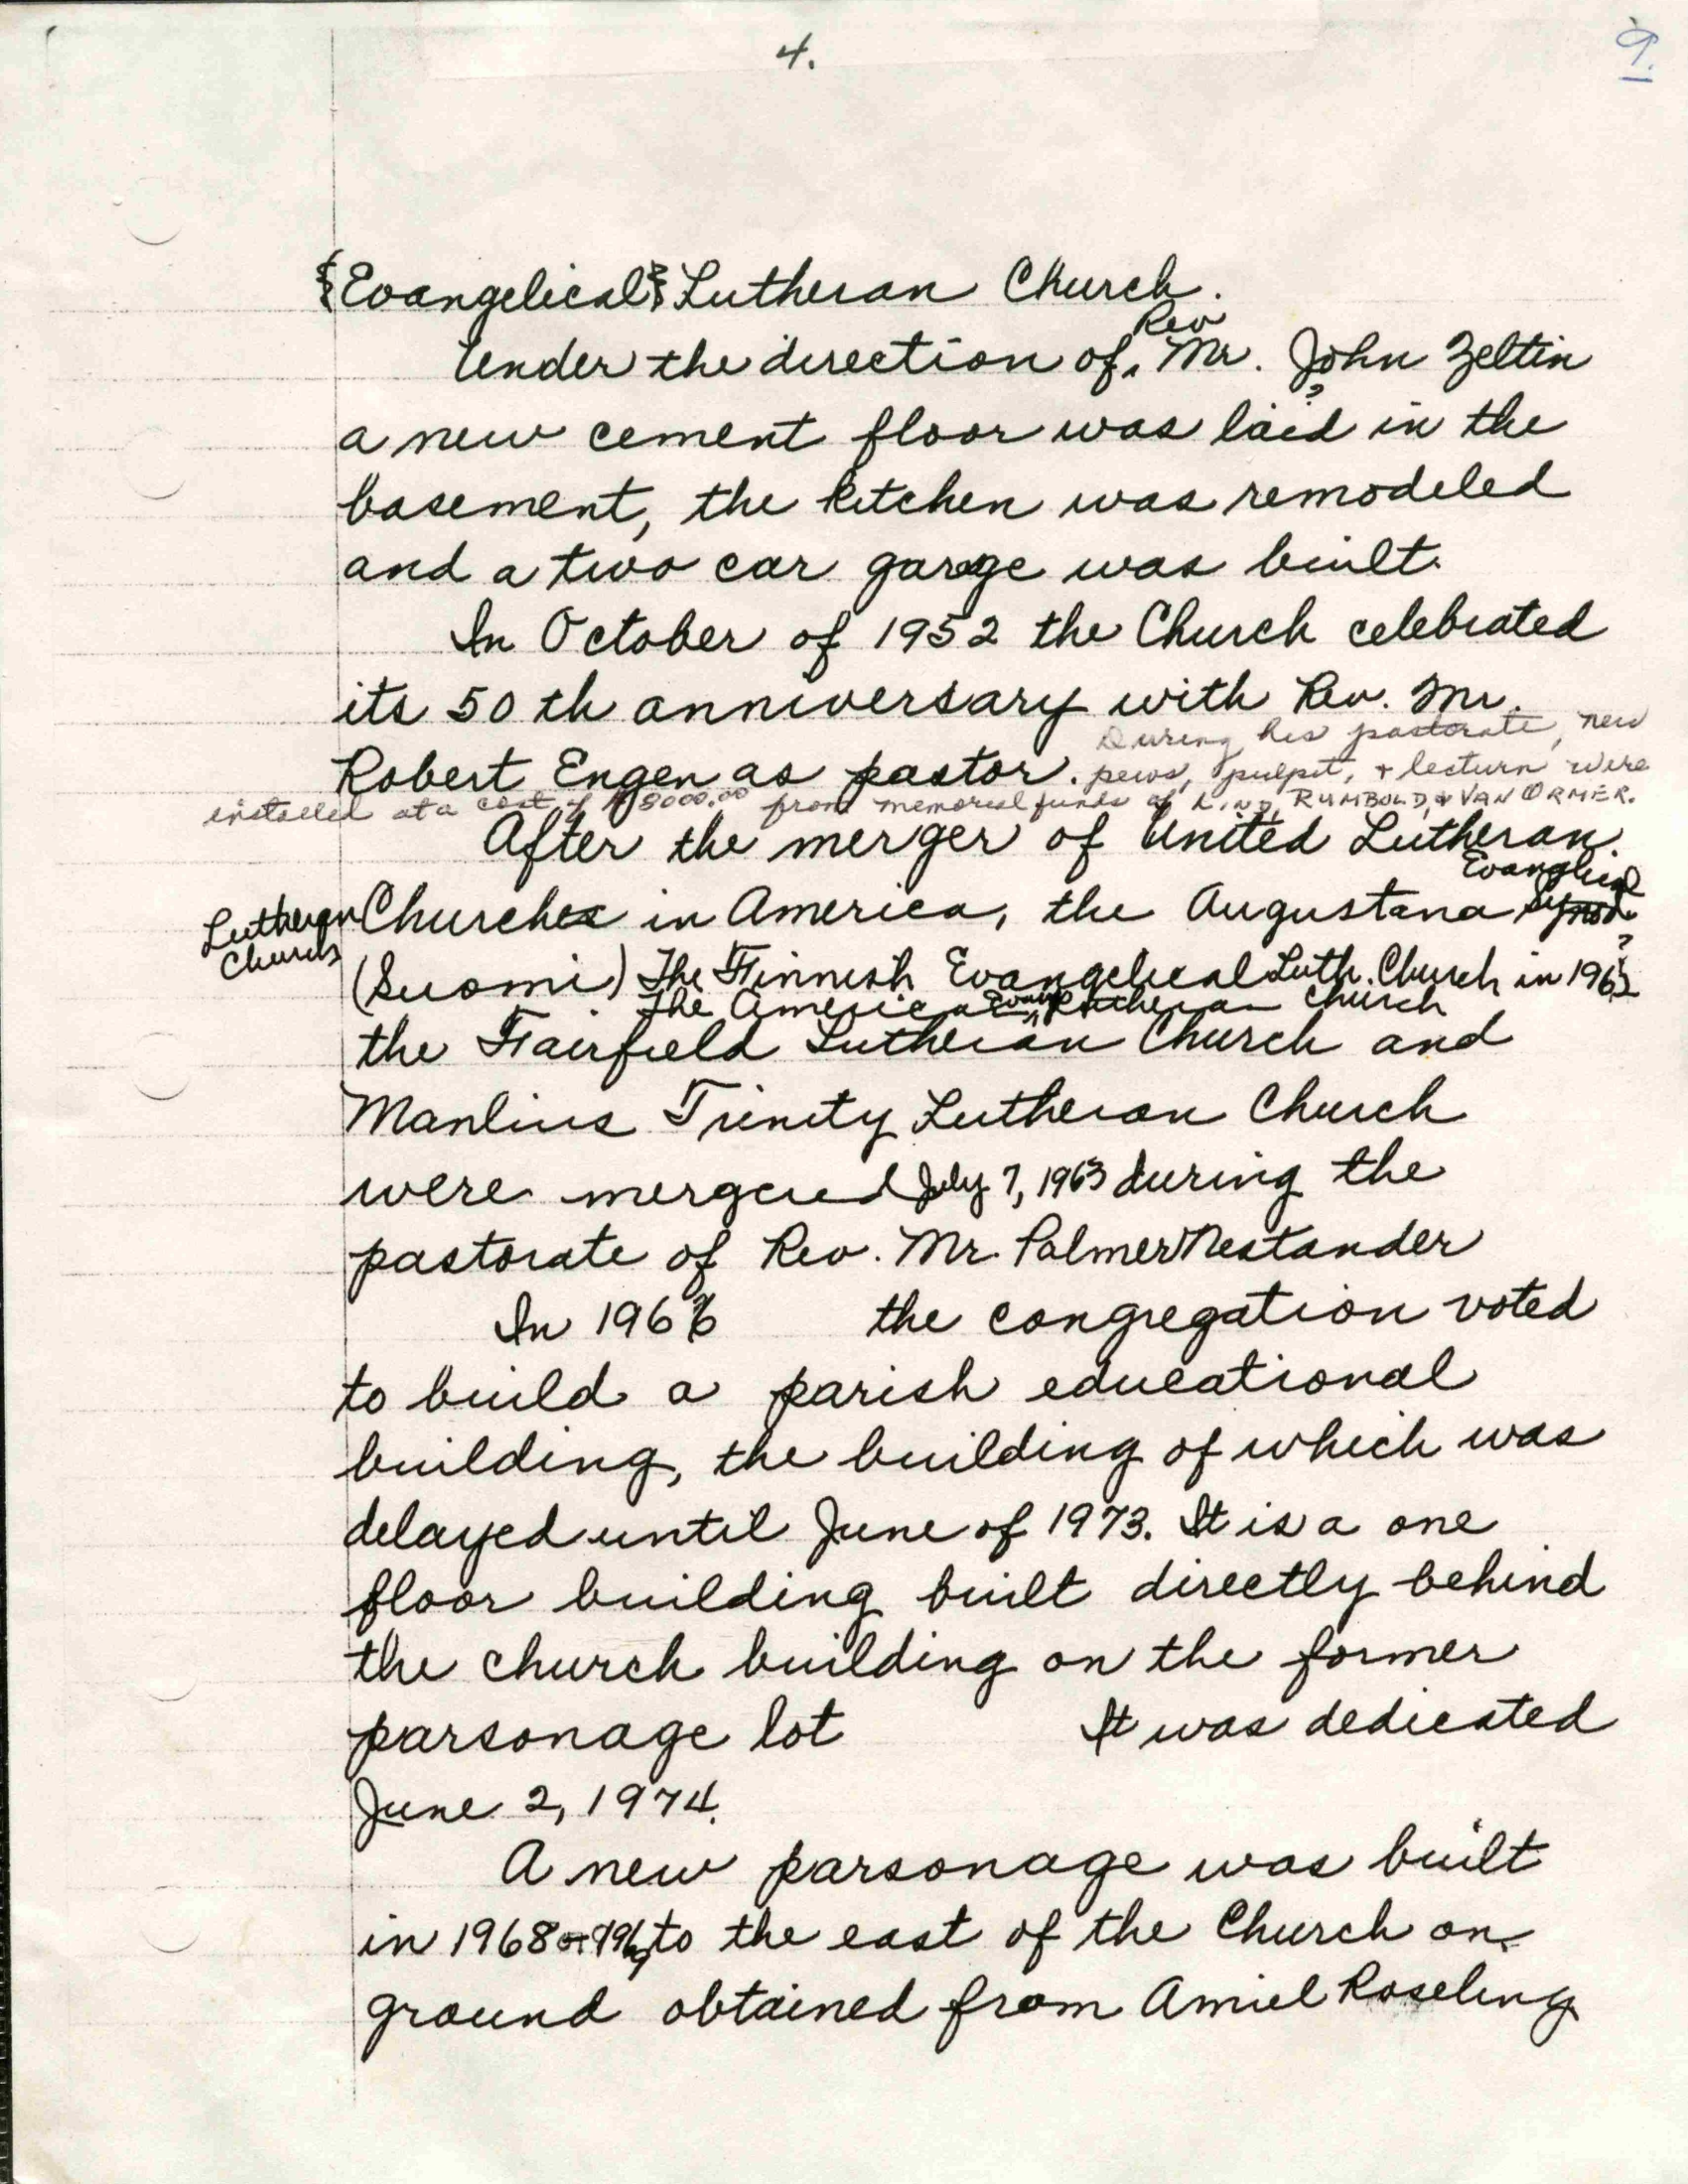 4.
9.
{Evangelical} Lutheran Church.
Rev
Under the direction of Mr. John Zeltin
?
a new cement floor was laid in the
basement, the kitchen was remodeled
and a two car garage was built.
In October of 1952 the Church celebrated
its 50th anniversary with Rev. Mr.
Robert Engen as pastor. During his pastorate, new
pews, pulpit, + lecturn were
installed at a cost of $8000.00 from memorial funds of LIND, RUMBOLD, & VAN ORMER.
After the merger of United Lutheran
Evanglical
Churches in America, the Augustana Synod.
Lutheran
Church
?
(Suomi) The Finnish Evangelical Luth. Church in 1962
The America Evang Lutheran Church
the Fairfield Lutheran Church and
Manlius Trinity Lutheran Church
were mergered July 7, 1963 during the
pastorate of Rev. Mr. Palmer Nestander
In 1966 the congregation voted
to build a parish educational
building, the building of which was
delayed until June of 1973. It is a one
floor building built directly behind
the church building on the former
parsonage lot It was dedicated
June 2, 1974.
A new parsonage was built
in 1968 or 1969 to the east of the Church on
ground obtained from Amiel Roseling